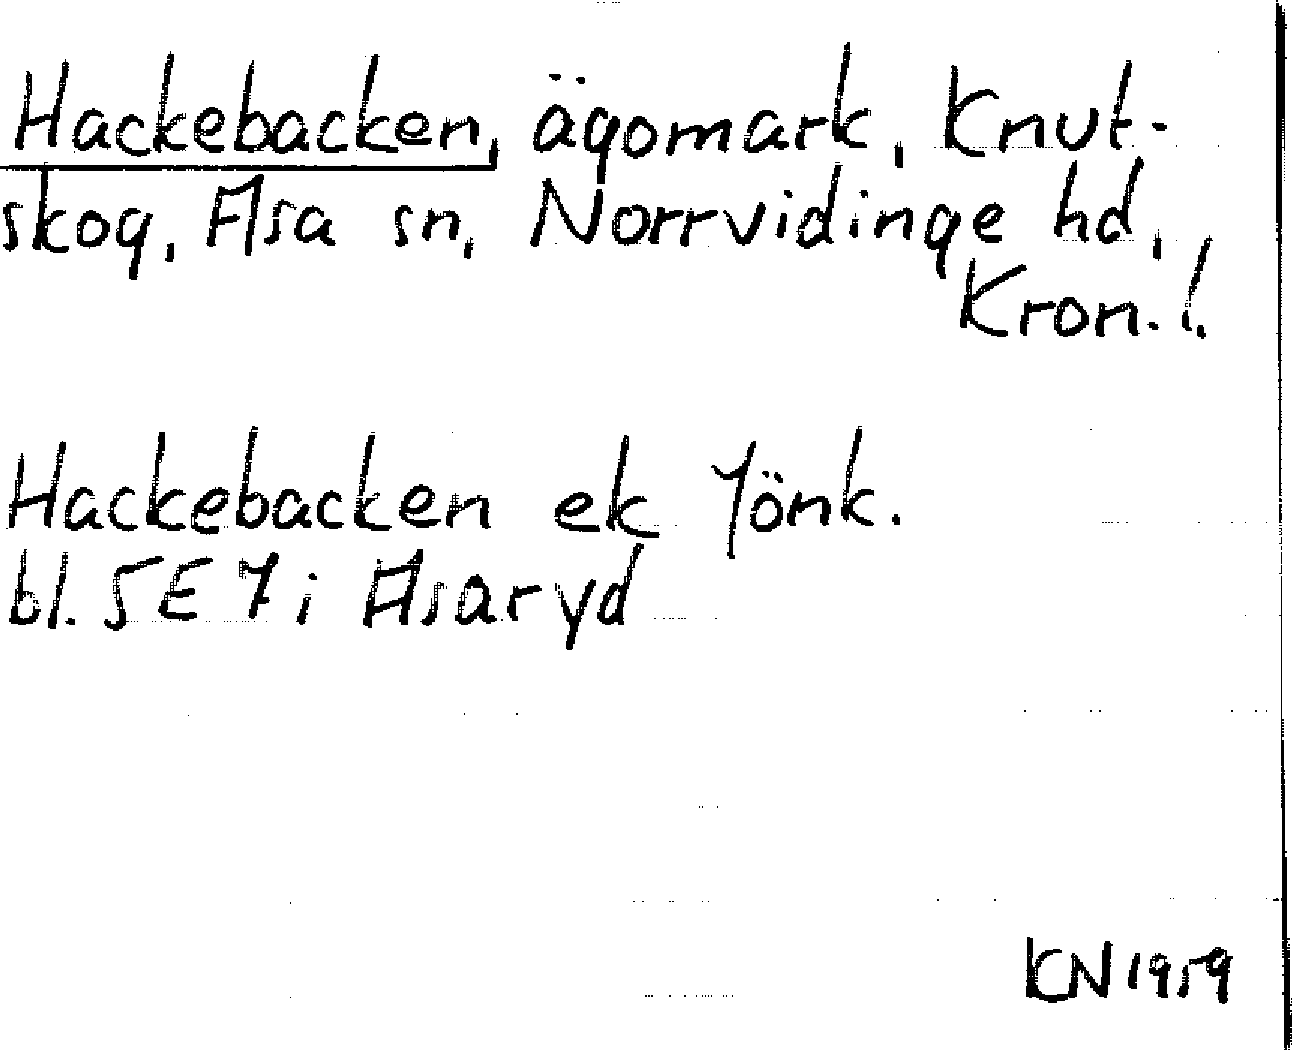 Hackebacken, ägomark, Knut-
skog, Asa sn, Norrvidinge hd,
Kron. l.
Hackebacken ek Jönk.
bl. 5E7 i Asaryd
KN 1959